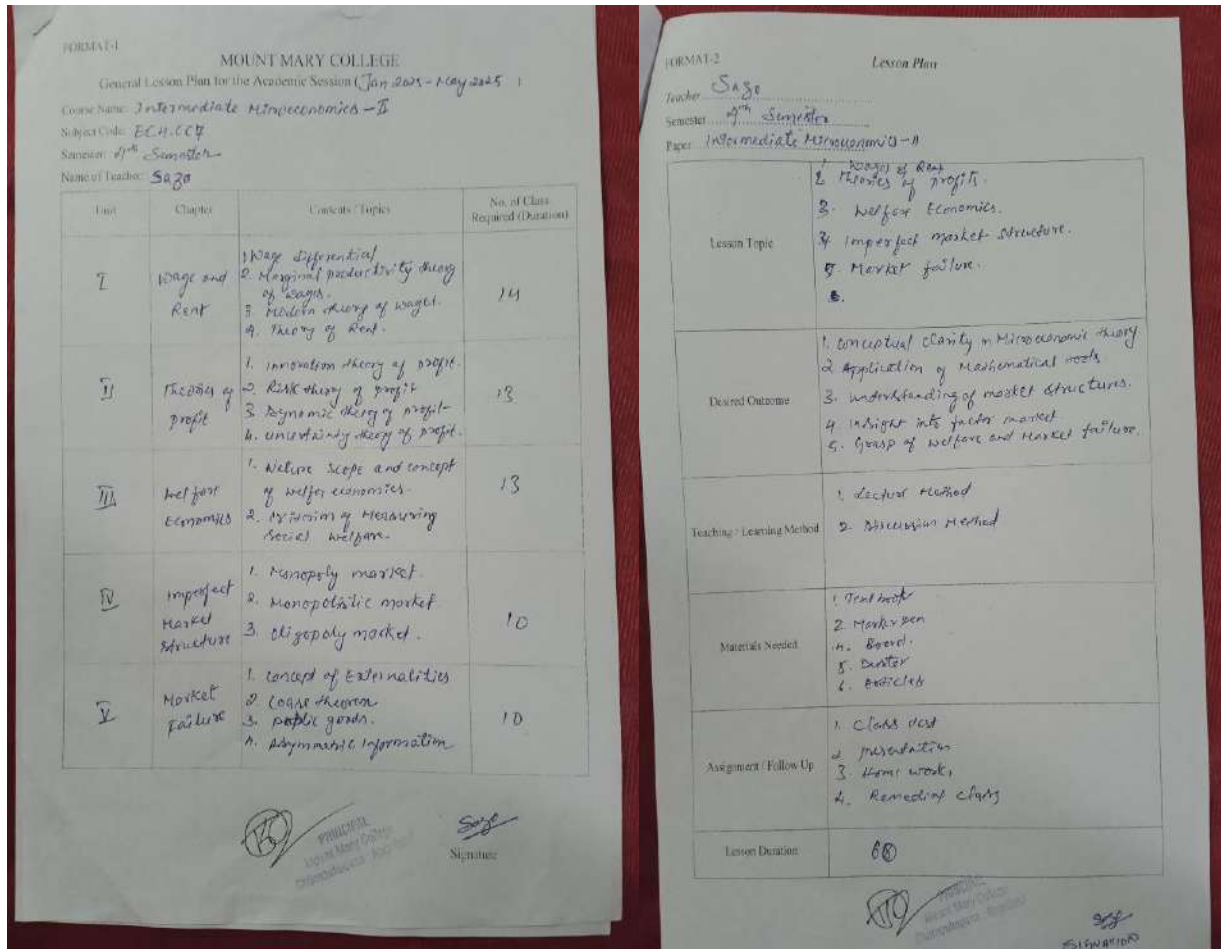 FORMAT-1
MOUNT MARY COLLEGE
General Lesson Plan for the Academic Session (Jan 2025 - May 2025 )
Course Name: Intermediate Microeconomics - II
Subject Code: ECH.CC7
Semester: 4th Semester
Name of Teacher: Sazo
Unit Chapter Contents / Topics No. of Class Required (Duration)
I Wage and Rent 14
1 Wage differential
2. Marginal productivity theory
of wages.
3. Modern theory of wages.
4. Theory of Rent.
II Theories of profit 13
1. innovation theory of profit.
2. Risk theory of profit
3 Dynamic theory of profit
4. uncertainty theory of profit.
III Welfare Economics 13
1. Nature Scope and concept
of welfer economics.
2. Criterion of Measuring
Social welfare.
IV Imperfect Market Structure 10
1. Monopoly market.
2. Monopolistic market.
3. Oligopoly market.
V Market Failure 10
1. Concept of Externalities
2 Coase theorem
3. public goods.
4. Asymmetric Information
PRINCIPAL
Mount Mary College
Sazo
Signature
FORMAT-2
Lesson Plan
Teacher Sazo
Semester 4th Semester
Paper Intermediate Microeconomics - II
Lesson Topic
1. Wages of Rent
2 Theories of profits.
3. Welfare Economics.
4 Imperfect market structure.
5. Market failure.
6.
Desired Outcome
1. Conceptual clarity in Microeconomic theory
2 Application of Mathematical tools
3. understanding of market structures.
4. insight into factor market
5. Grasp of welfare and Market failure.
Teaching / Learning Method
1. Lecture Method
2. Discussion Method
Materials Needed
1. Text book
2. Marker pen
4. Board.
5. Duster
6. Articles
Assignment / Follow Up
1. Class test
2 presentation
3. Home work,
4. Remedial class
Lesson Duration
PRINCIPAL
Mount Mary College